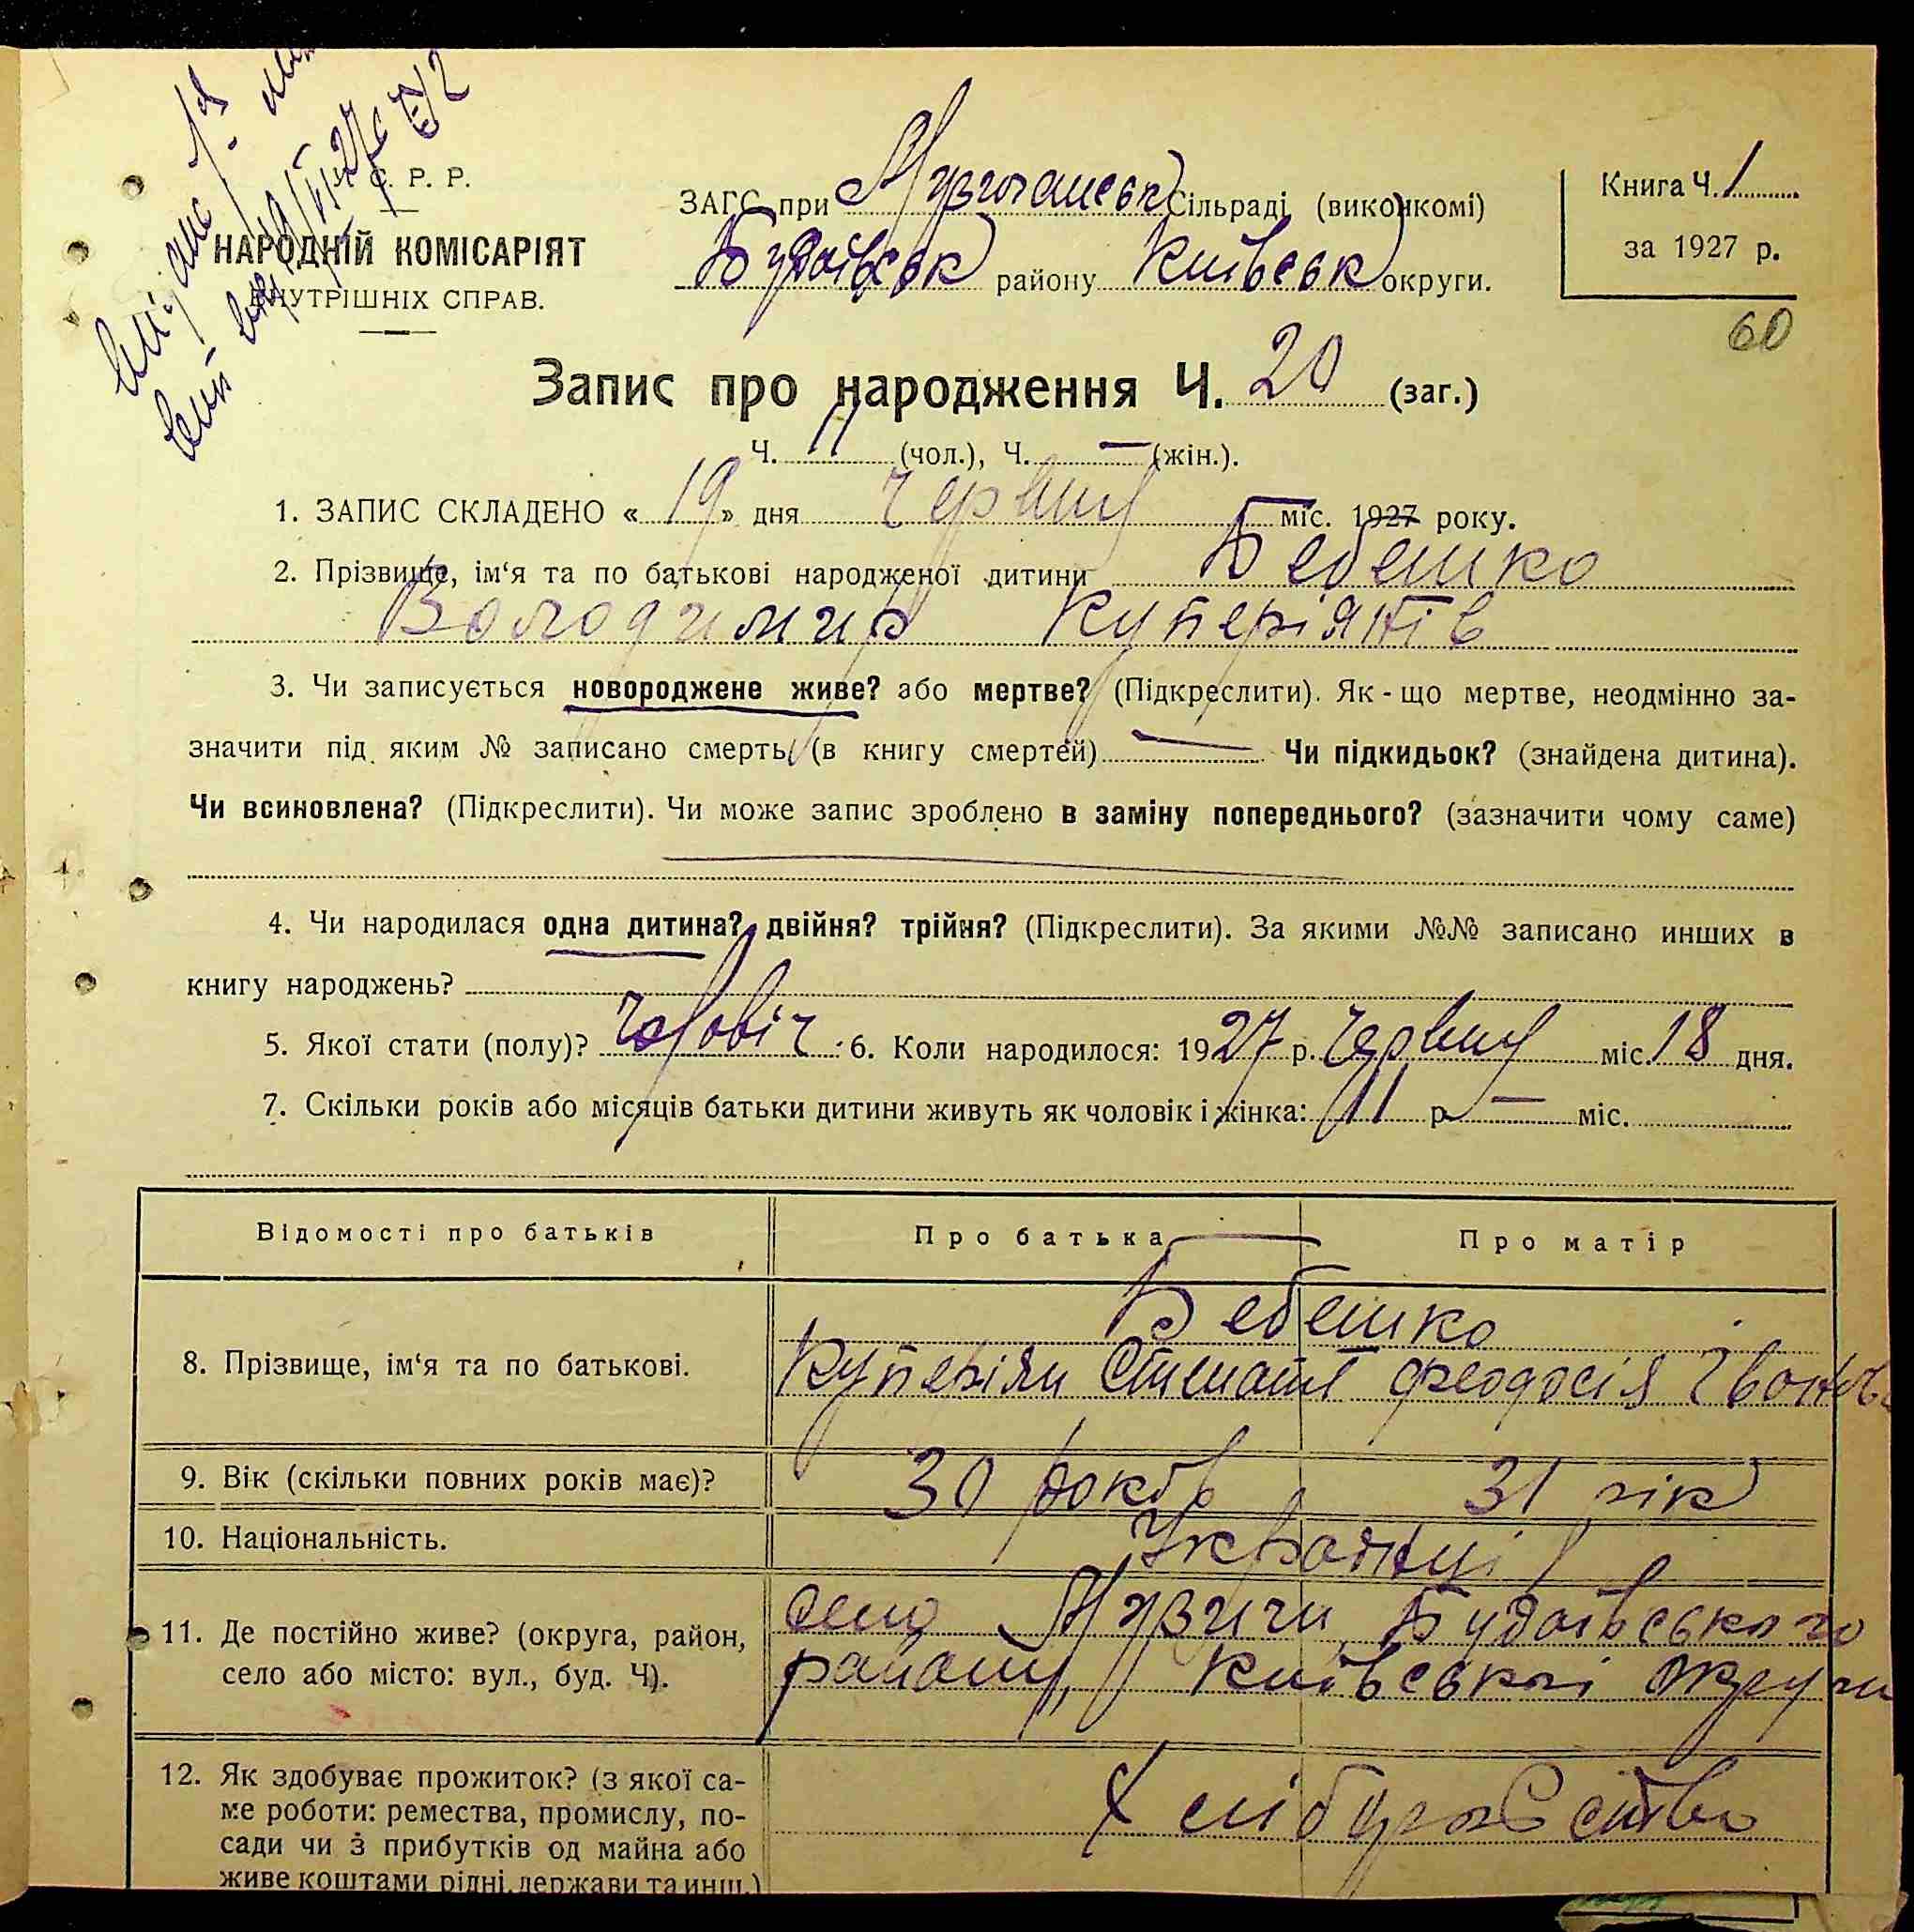 С. Р. Р.
НАРОДНІЙ КОМІСАРІЯТ
ВНУТРІШНІХ СПРАВ.
ЗАГС при Сільраді (виконкомі)
Будаївськ району Київськ округи.
Книга Ч. 1
за 1927 р.
60
Запис про народження Ч. 20 (заг.)
Ч. 11 (чол.), Ч. — (жін.).
1. ЗАПИС СКЛАДЕНО « 19 » дня Червня міс. 1927 року.
2. Прізвище, ім‘я та по батькові народженої дитини Бебешко
Володимир Купріянів
3. Чи записується новороджене живе? або мертве? (Підкреслити). Як - що мертве, неодмінно за-
значити під яким № записано смерть (в книгу смертей) — Чи підкидьок? (знайдена дитина).
Чи всиновлена? (Підкреслити). Чи може запис зроблено в заміну попереднього? (зазначити чому саме)
4. Чи народилася одна дитина? двійня? трійня? (Підкреслити). За якими №№ записано инших в
книгу народжень?
5. Якої стати (полу)? Чоловіч. 6. Коли народилося: 1927 р. Червня міс. 18 дня.
7. Скільки років або місяців батьки дитини живуть як чоловік і жінка: 11 р. — міс.
Відомості про батьків Про батька Про матір
Бебешко
8. Прізвище, ім‘я та по батькові. Феодосія
9. Вік (скільки повних років має)? 30 років 31 рік
10. Національність. Українці
11. Де постійно живе? (округа, район, село Музичи, Будаївського
село або місто: вул., буд. Ч). району, Київської округи
12. Як здобуває прожиток? (з якої са-
ме роботи: ремества, промислу, по- Хліборобство
сади чи з прибутків од майна або
живе коштами рідні, держави та инш.)